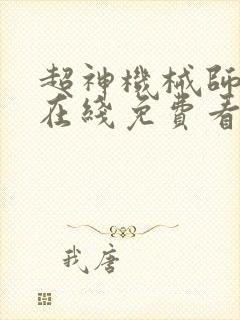 超神機械師
在綫免費看
我唐